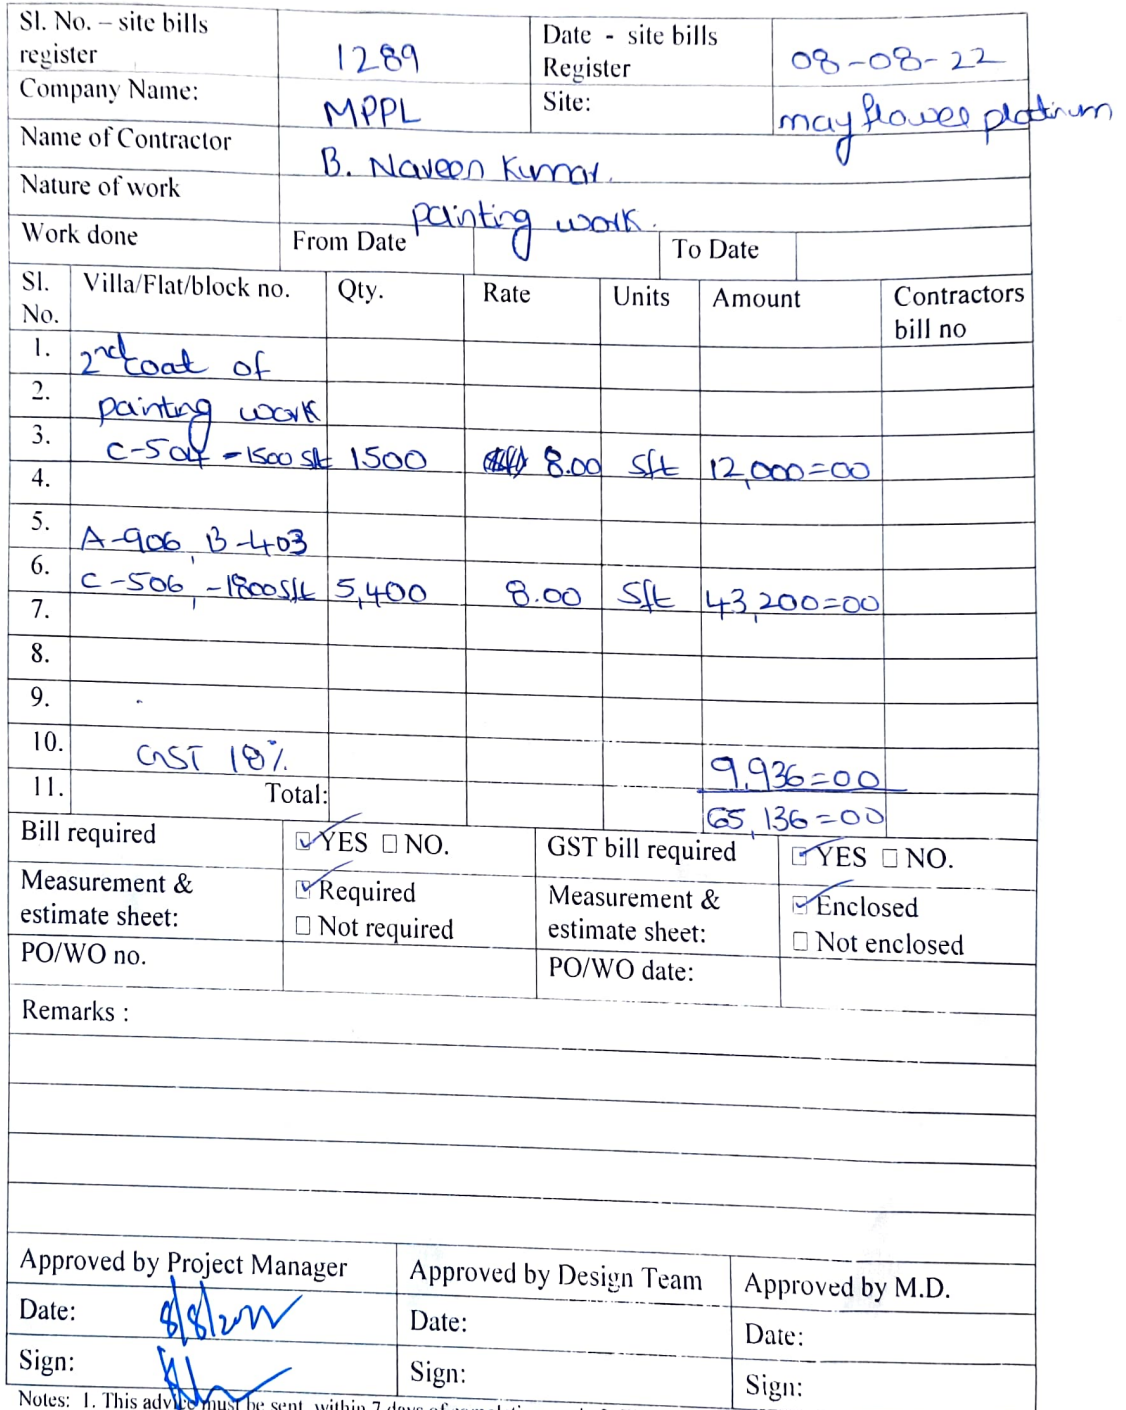 Sl. No. – site bills register 1289 Date - site bills Register 08-08-22
Company Name: MPPL Site: mayflower platinum
Name of Contractor B. Naveen Kumar.
Nature of work painting work.
Work done From Date To Date
Sl. No. Villa/Flat/block no. Qty. Rate Units Amount Contractors bill no
1. 2nd coat of
2. painting work
3. C-504 - 1500 Sft 1500 8.00 Sft 12,000=00
4.
5. A-906, B-403
6. C-506, -1800 Sft 5,400 8.00 Sft 43,200=00
7.
8.
9.
10. GST 18% 9,936=00
11. Total: 65,136=00
Bill required YES NO. GST bill required YES NO.
Measurement & estimate sheet: Required Not required Measurement & estimate sheet: Enclosed Not enclosed
PO/WO no. PO/WO date:
Remarks :
Approved by Project Manager Approved by Design Team Approved by M.D.
Date: 8/8/2022 Date: Date:
Sign: Sign: Sign:
Notes: 1. This advice must be sent within 7 days of